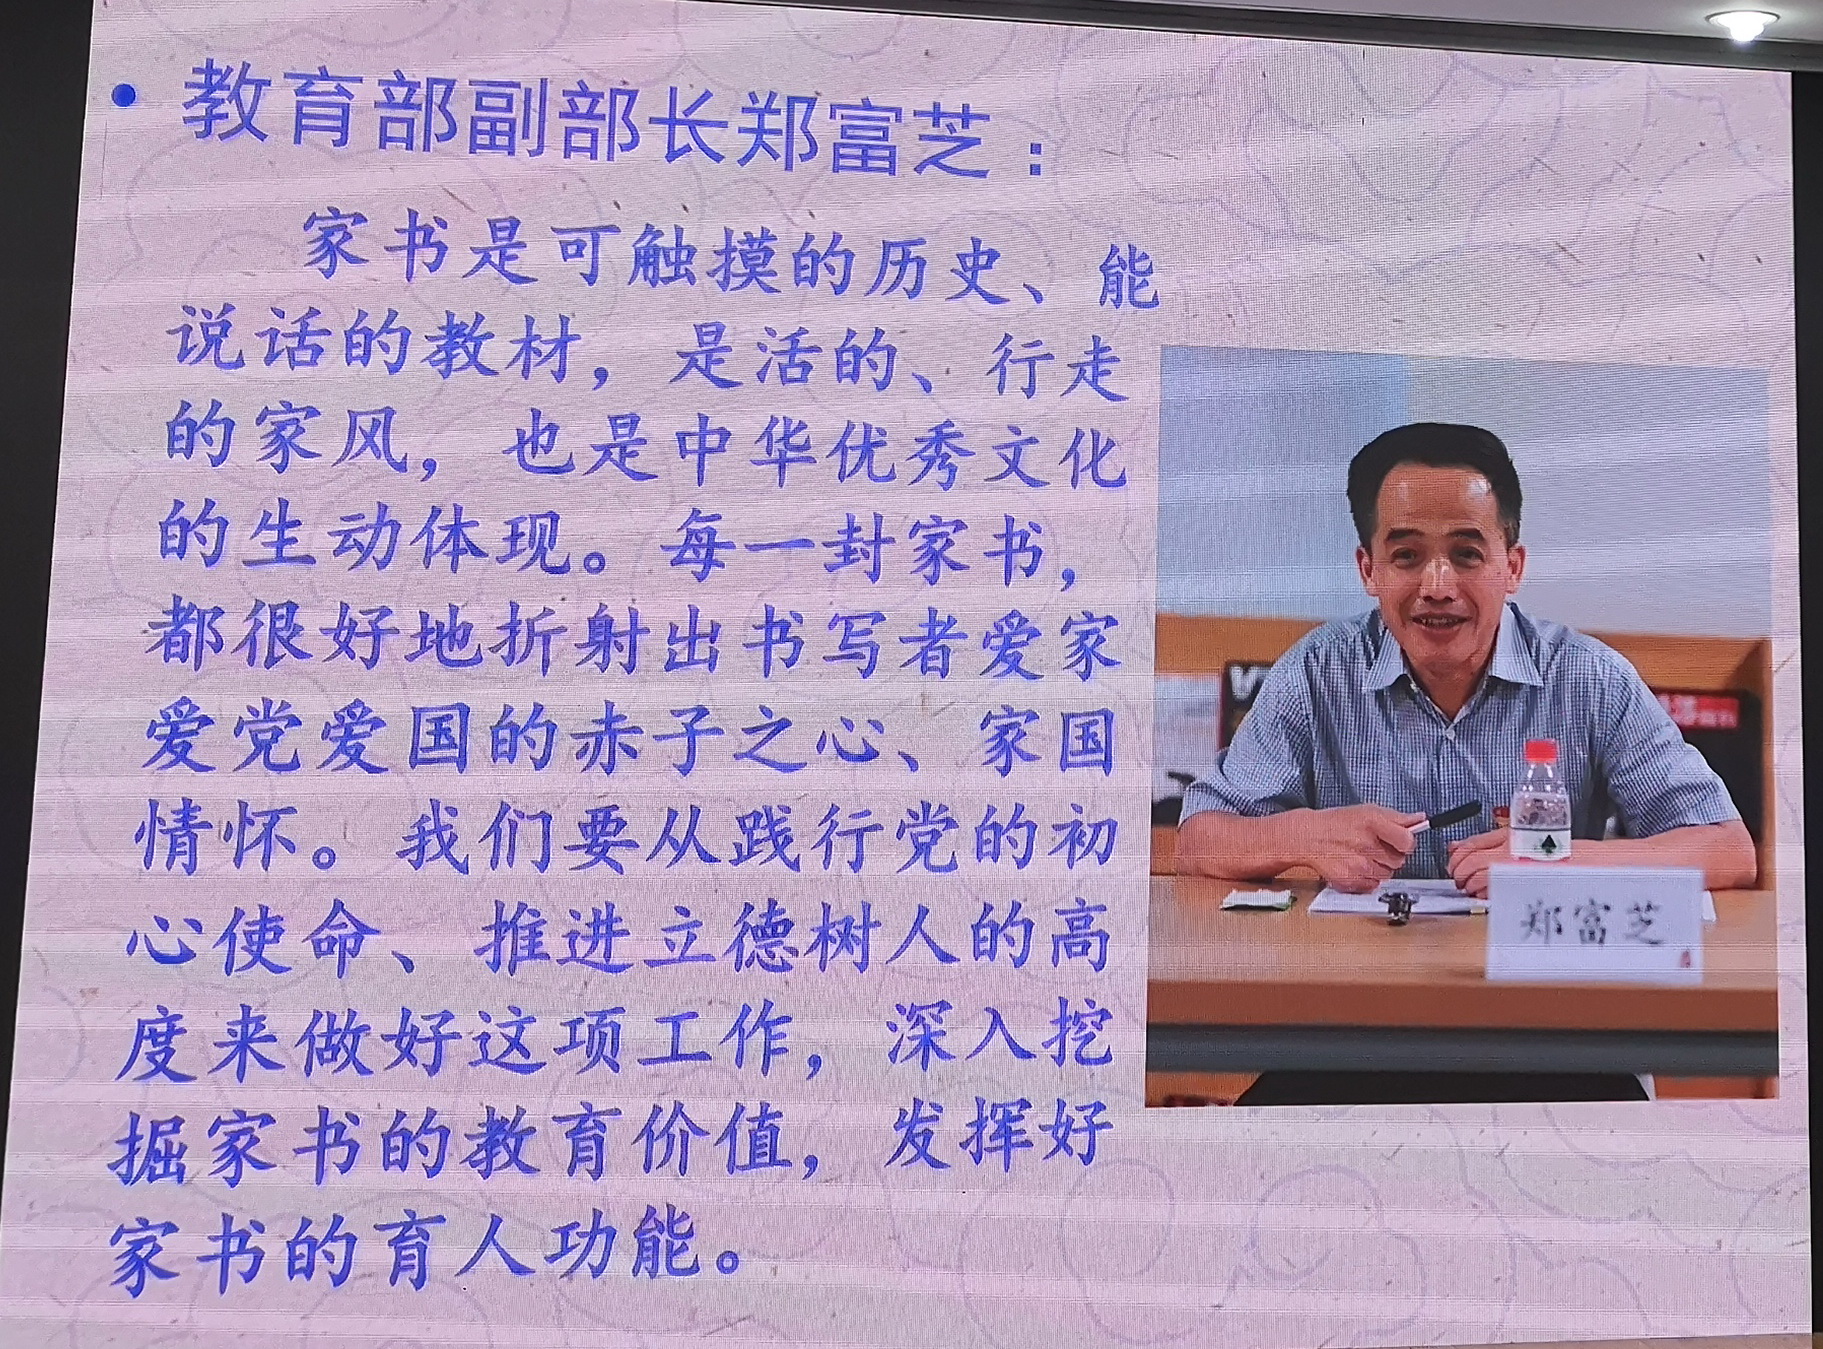 • 教育部副部长郑富芝：
家书是可触摸的历史、能
说话的教材，是活的、行走
的家风，也是中华优秀文化
的生动体现。每一封家书，
都很好地折射出书写者爱家
爱党爱国的赤子之心、家国
情怀。我们要从践行党的初
心使命、推进立德树人的高
度来做好这项工作，深入挖
掘家书的教育价值，发挥好
家书的育人功能。
郑富芝